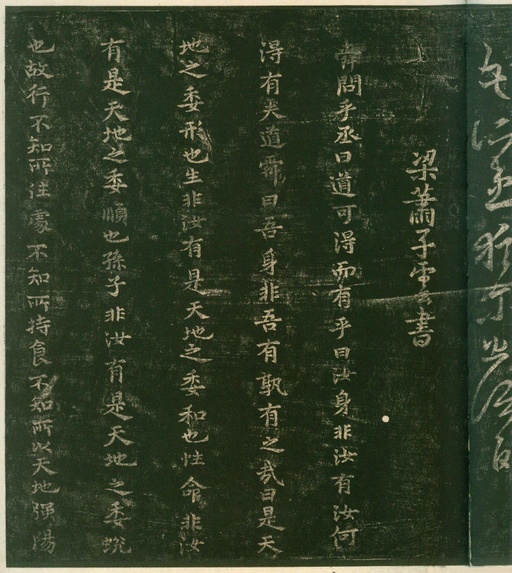 梁蕭子雲書
舜問乎丞曰道可得而有乎曰汝身非汝有汝何
得有夫道舜曰吾身非吾有孰有之哉曰是天
地之委形也生非汝有是天地之委和也性命非汝
有是天地之委順也孫子非汝有是天地之委蛻
也故行不知所往處不知所持食不知所以天地強陽